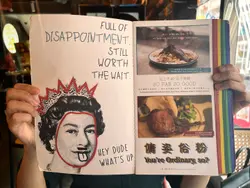 FULL OF
DISAPPOINTMENT
STILL
WORTH
THE WAIT.
HEY DUDE
WHAT'S UP
SO FAR SO GOOD
傭妾俗粉
You're Ordinary, so?